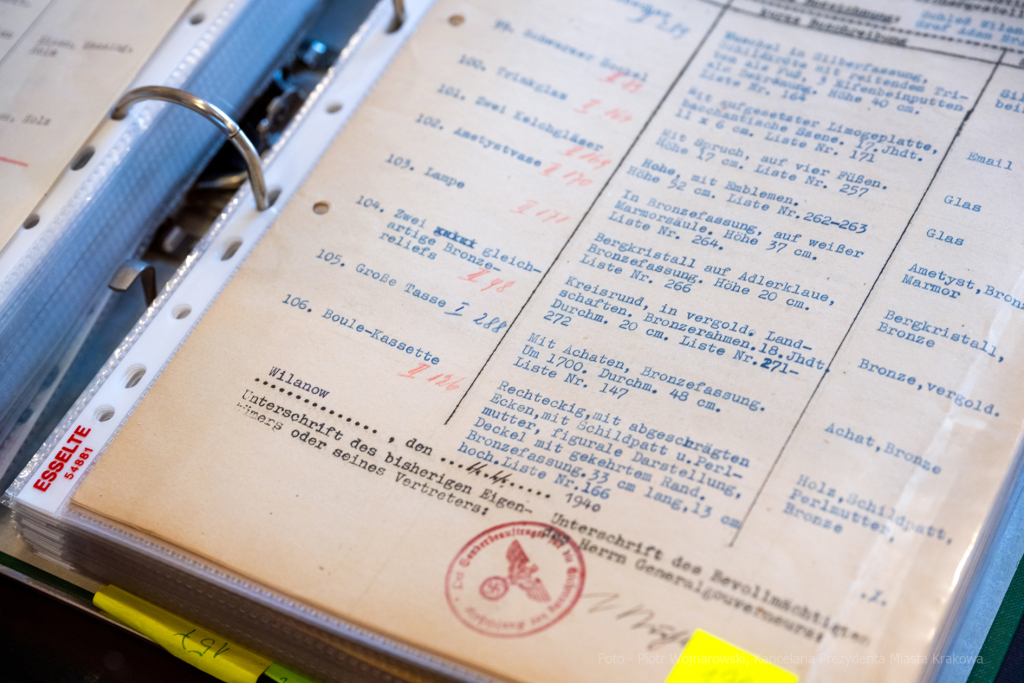 99. Schwarzer Sessel
II 83
100. Trinkglas
I 164
101. Zwei Kelchgläser
II 169
102. Ametystvase
II 170
103. Lampe
II 171
104. Zwei gleich-
artige Bronze-
reliefs
II 98
105. Große Tasse I 288
106. Boule-Kassette
II 126
Kurze Beschreibung
Muschel in Silberfassung,
Schildkröte mit reitendem Tri-
ton als Fuß, 3 Elfenbeinputten
Liste Nr. 164
Mit aufgesetzter Limogeplatte,
bachantische Szene. 17.Jhdt.
11 x 6 cm. Liste Nr. 171
Mit Spruch, auf vier Füßen.
Höhe 17 cm. Liste Nr. 257
Hohe, mit Emblemen.
Höhe 52 cm. Liste Nr.262-263
In Bronzefassung, auf weißer
Marmorsäule. Höhe 37 cm.
Liste Nr. 264.
Bergkristall auf Adlerklaue,
Bronzefassung. Höhe 20 cm.
Liste Nr. 266
Kreisrund, in vergold. Land-
schaften. Bronzerahmen.18.Jhdt,
Durchm. 20 cm. Liste Nr.271-
272
Mit Achaten, Bronzefassung.
Um 1700. Durchm. 48 cm.
Liste Nr. 147
Rechteckig,mit abgeschrägten
Ecken,mit Schildpatt u.Perl-
mutter, figurale Darstellung,
Deckel mit gekehrtem Rand.
Bronzefassung.33 cm lang,13 cm
hoch,Liste Nr.166
Email
Glas
Glas
Ametyst,Bron
Marmor
Bergkristall,
Bronze
Bronze,vergold.
Achat,Bronze
Holz,Schildpatt,
Perlmutter,
Bronze
Wilanow
, den ........... 1940
Unterschrift des bisherigen Eigen-
tümers oder seines Vertreters:
Unterschrift des Bevollmächtigten
des Herrn Generalgouverneurs:
./.
ESSELTE
54881
157
Foto - Piotr Wojnarowski, Kancelaria Prezydenta Miasta Krakowa